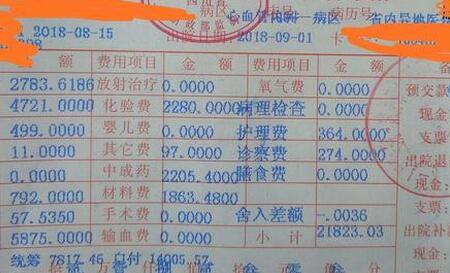 病区 心血管内科一病区 病历号 省内异地医
2018-08-15 2018-09-01
金额 费用项目 金额 费用项目 金额
2783.6186 放射治疗 0.0000 氧气费 0.0000 预交款
4721.0000 化验费 2280.0000 病理检查 0.0000 现金
499.0000 婴儿费 0.0000 护理费 364.0000 支票
11.0000 其它费 97.0000 诊察费 274.0000 出院退
0.0000 中成药 2205.4000 膳食费 0.0000 现金:
792.0000 材料费 1863.4800 支票:
57.5350 手术费 0.0000 舍入差额 -.0036 出院补
5875.0000 输血费 0.0000 小计 21823.03 现金:
统筹 7817.46 自付 14005.57